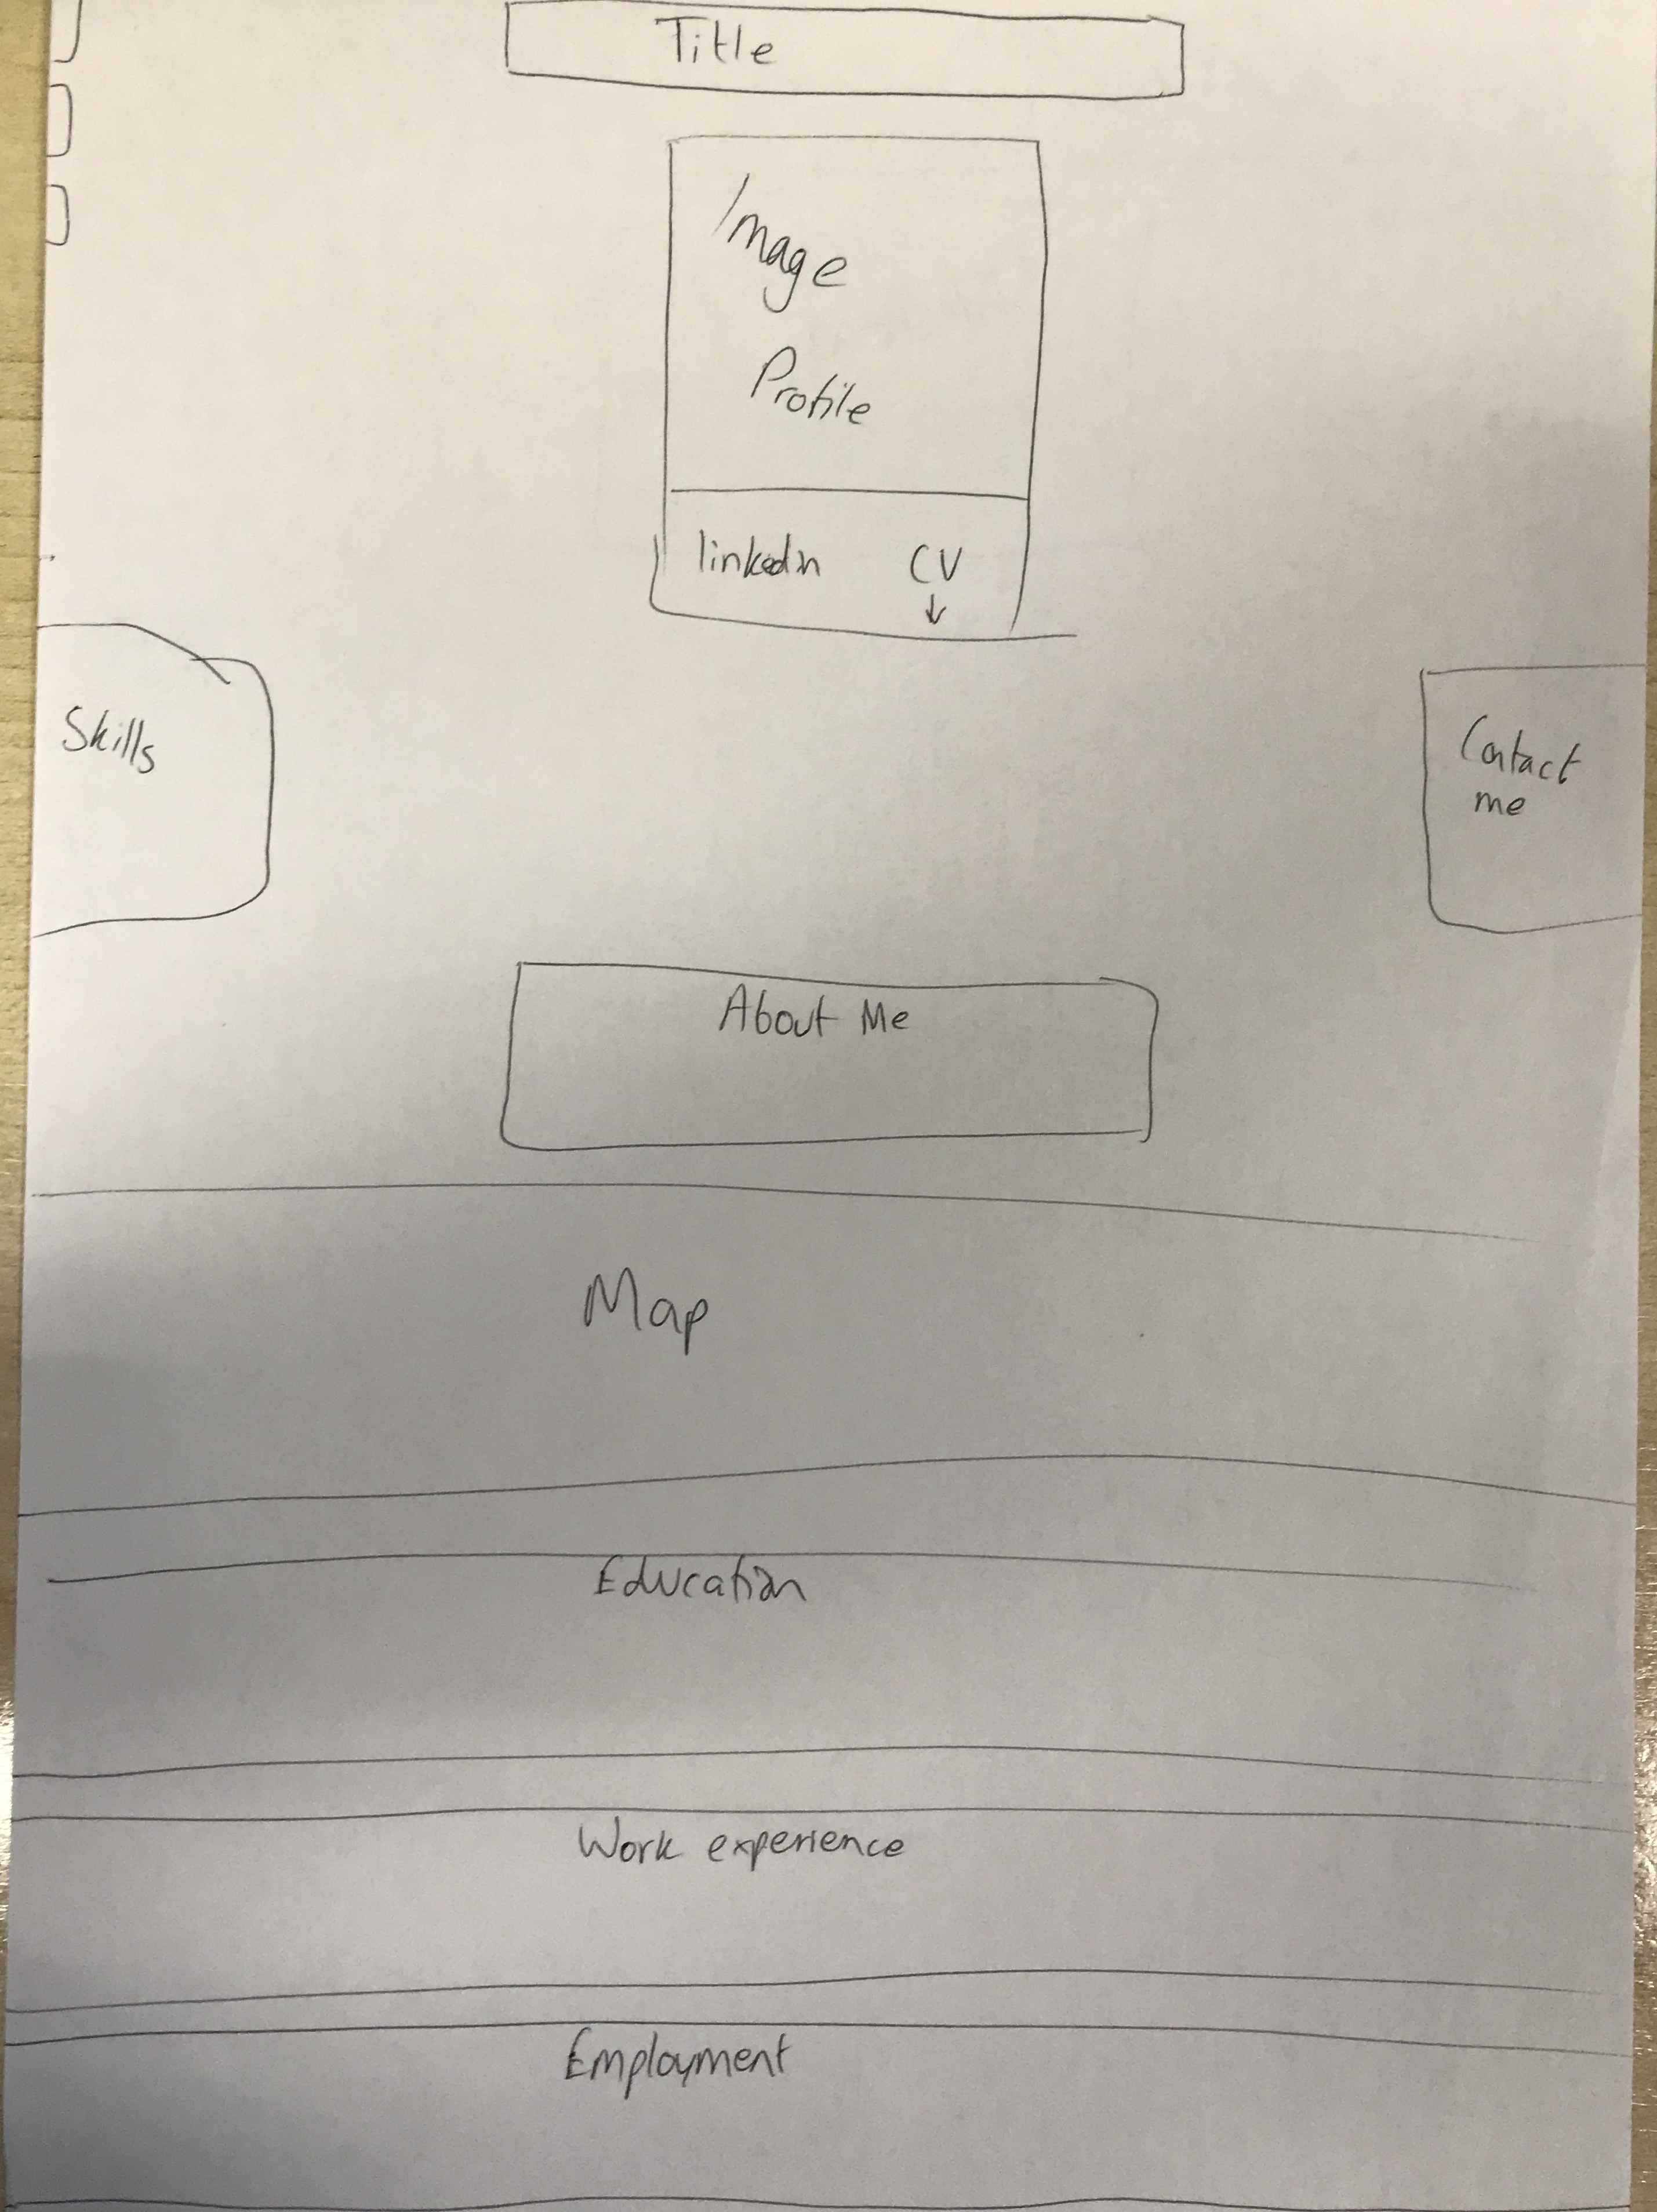 Title
Image
Profile
linkedin CV
Skills
Contact
me
About Me
Map
Education
Work experience
Employment